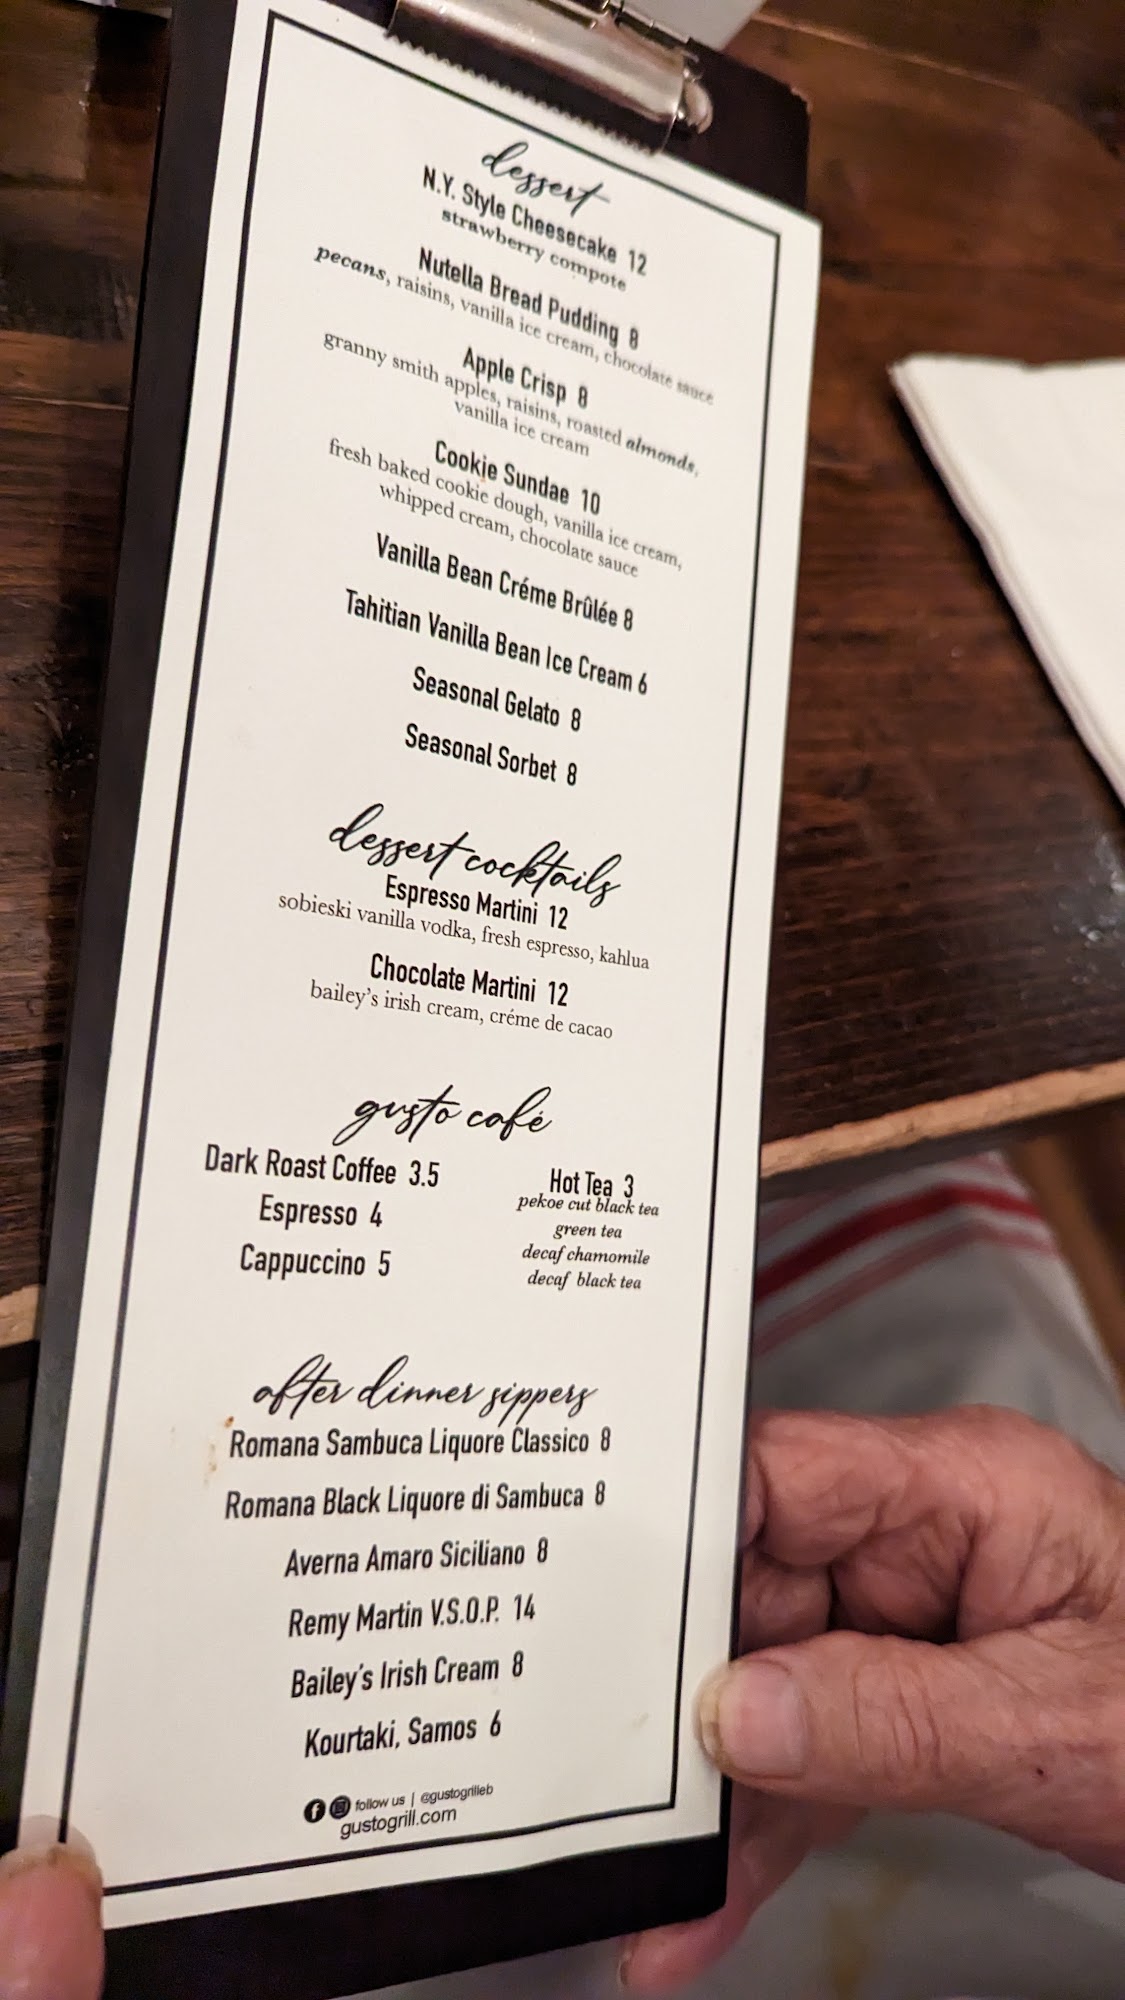 dessert
N.Y. Style Cheesecake 12
strawberry compote
Nutella Bread Pudding 8
pecans, raisins, vanilla ice cream, chocolate sauce
Apple Crisp 8
granny smith apples, raisins, roasted almonds,
vanilla ice cream
Cookie Sundae 10
fresh baked cookie dough, vanilla ice cream,
whipped cream, chocolate sauce
Vanilla Bean Créme Brûlée 8
Tahitian Vanilla Bean Ice Cream 6
Seasonal Gelato 8
Seasonal Sorbet 8
dessert cocktails
Espresso Martini 12
sobieski vanilla vodka, fresh espresso, kahlua
Chocolate Martini 12
bailey's irish cream, créme de cacao
gusto café
Dark Roast Coffee 3.5
Espresso 4
Cappuccino 5
Hot Tea 3
pekoe cut black tea
green tea
decaf chamomile
decaf black tea
after dinner sippers
Romana Sambuca Liquore Classico 8
Romana Black Liquore di Sambuca 8
Averna Amaro Siciliano 8
Remy Martin V.S.O.P. 14
Bailey's Irish Cream 8
Kourtaki, Samos 6
follow us | @gustogrilleb
gustogrill.com